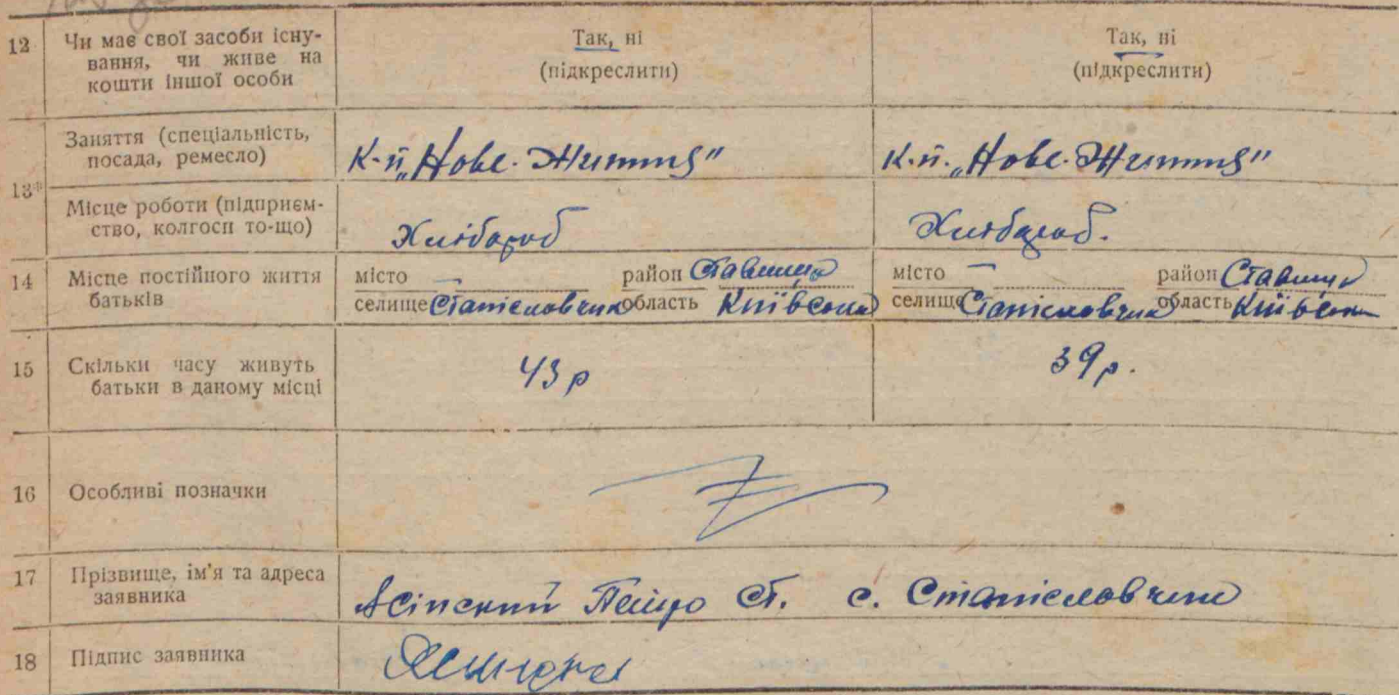 12 Чи має свої засоби існу-
вання, чи живе на
кошти іншої особи
Так, ні
(підкреслити)
Так, ні
(підкреслити)
13*
Заняття (спеціальність,
посада, ремесло)
К-п „Нове-Життя"
К.п. „Нове-Життя"
Місце роботи (підприєм-
ство, колгосп то-що)
Хлібороб
Хлібороб.
14 Місце постійного життя
батьків
місто — район Ставище
селище Станіславчик область Київська
місто — район Ставище
селище Станіславчик область Київська
15 Скільки часу живуть
батьки в даному місці
43 р
39 р.
16 Особливі позначки
17 Прізвище, ім'я та адреса
заявника
Ст. с. Станіславчик
18 Підпис заявника